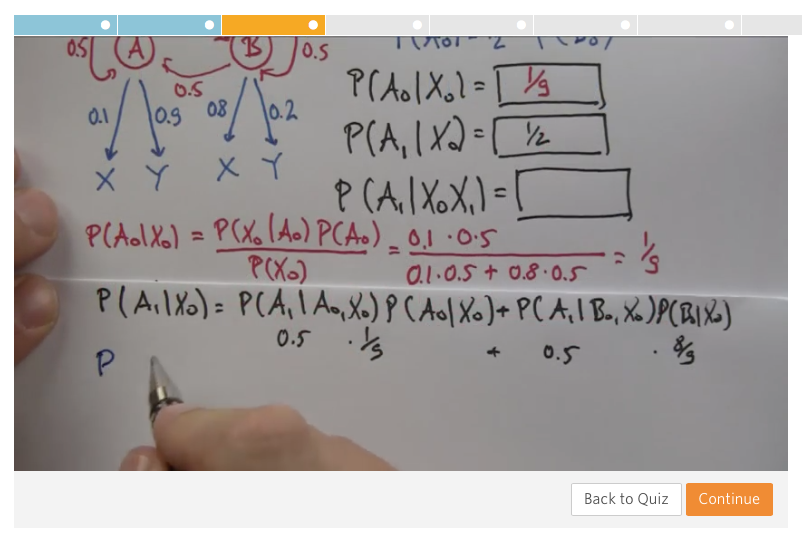 0.5 A B 0.5
0.5
0.1 0.9 0.8 0.2
X Y X Y
P(A₀|X₀) = 1/9
P(A₁|X₀) = 1/2
P(A₁|X₀X₁) =
P(A₀|X₀) = P(X₀|A₀) P(A₀) / P(X₀) = 0.1 · 0.5 / 0.1·0.5 + 0.8·0.5 = 1/9
P(A₁|X₀) = P(A₁|A₀,X₀) P(A₀|X₀) + P(A₁|B₀,X₀) P(B₀|X₀)
0.5 · 1/9 + 0.5 · 8/9
P
Back to Quiz
Continue